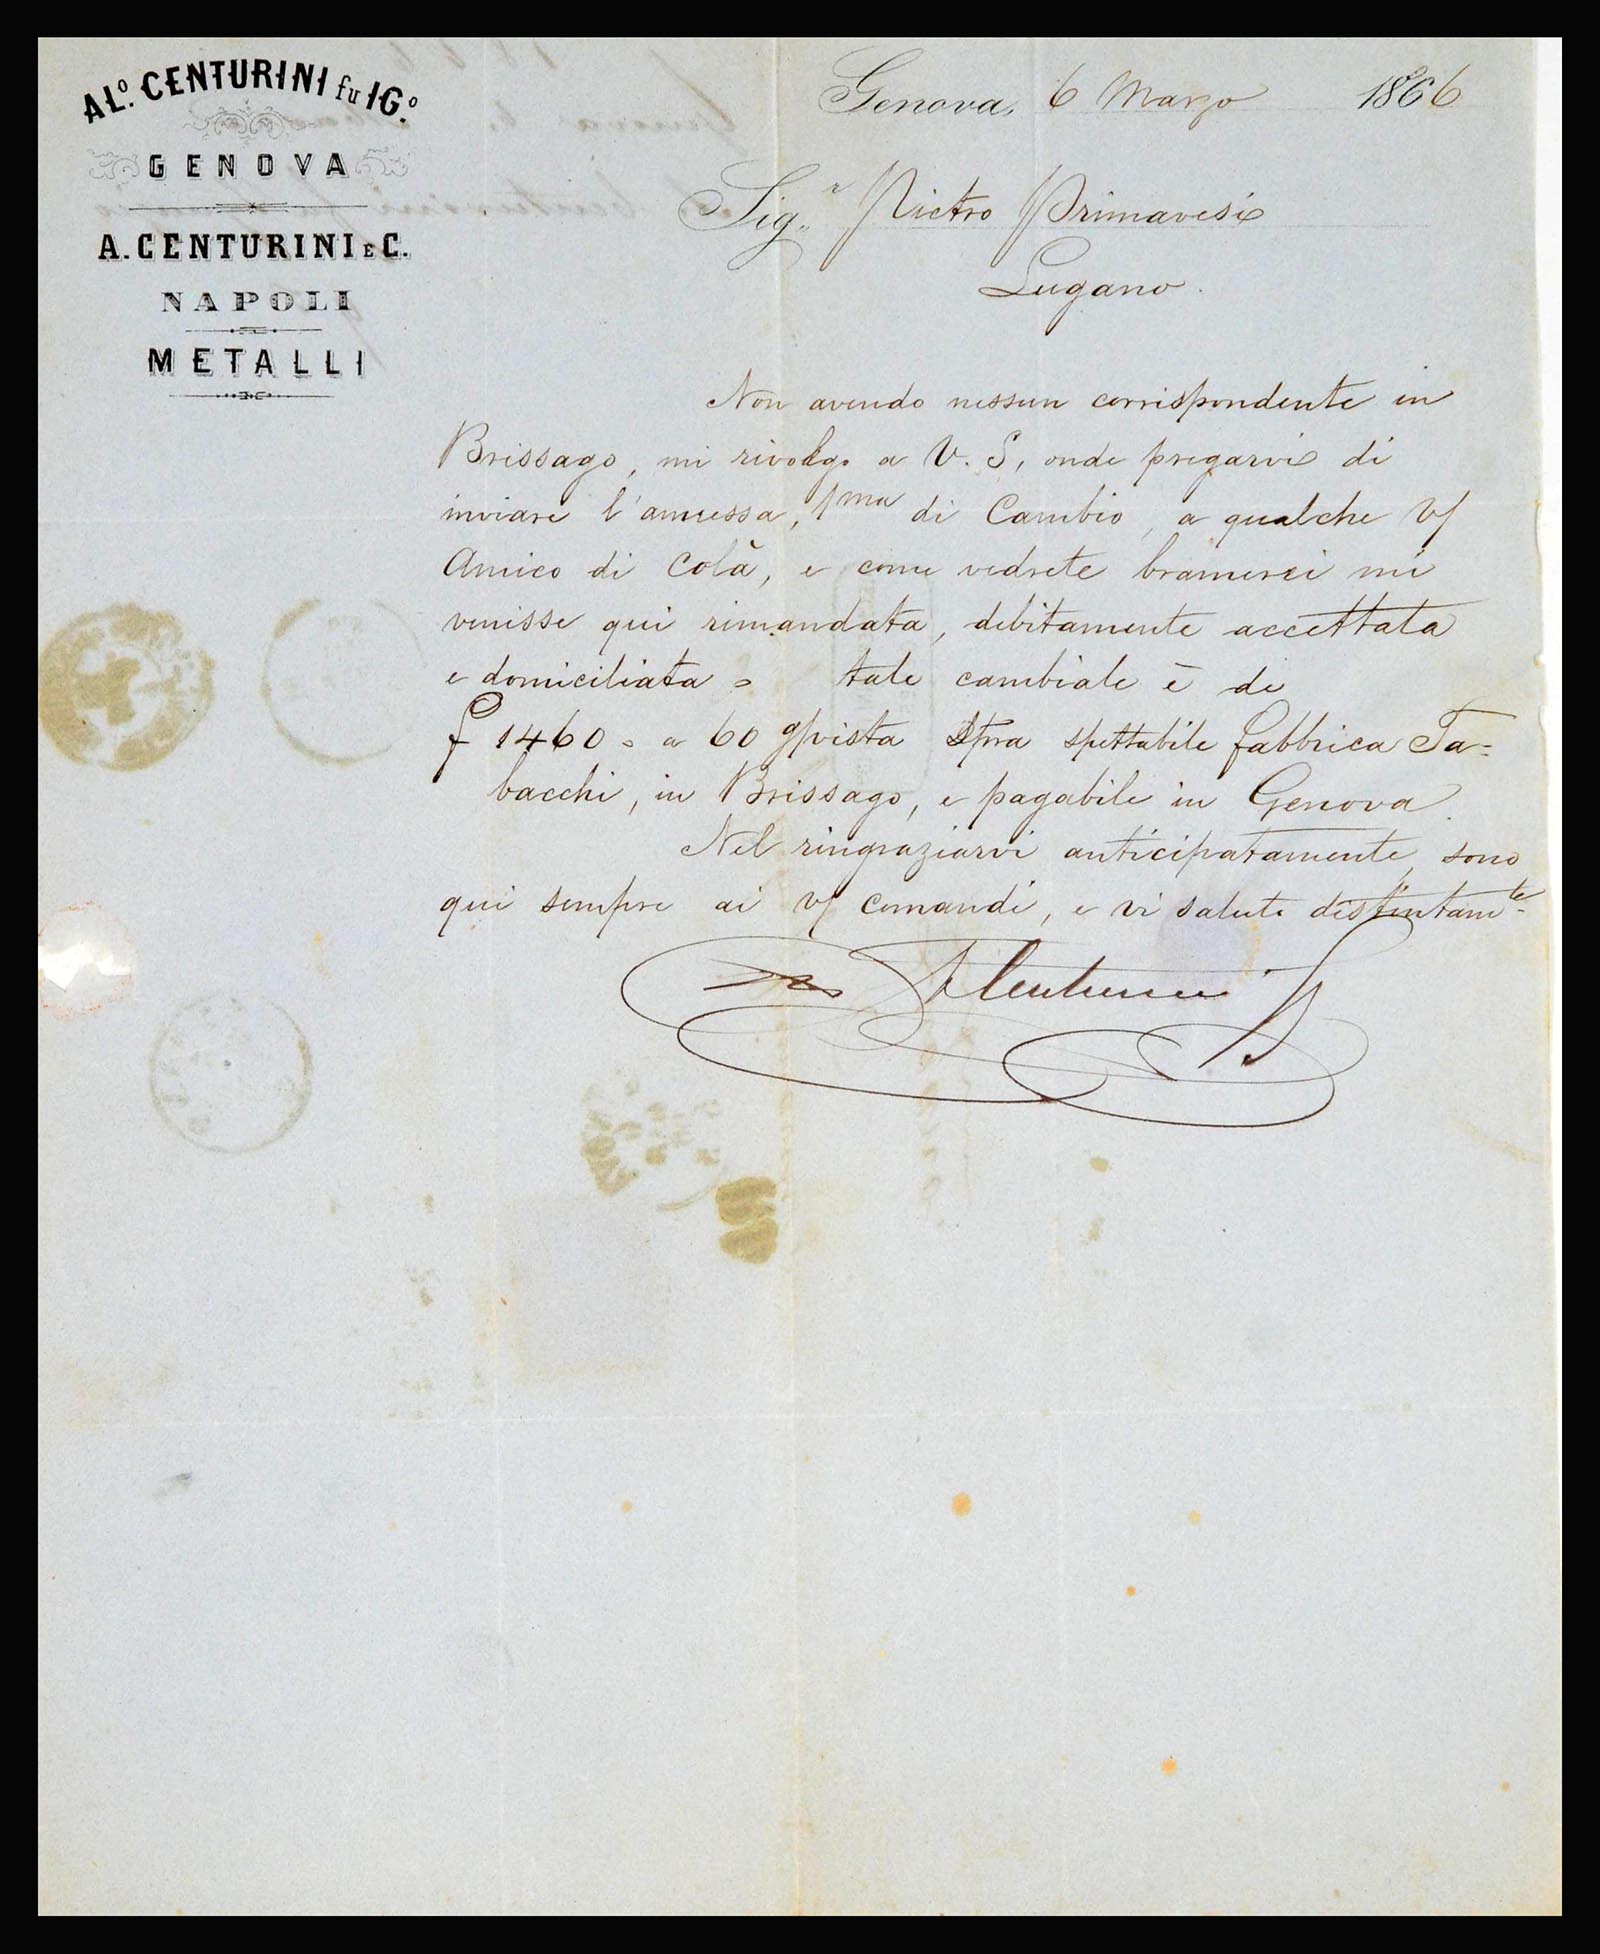 ALº. CENTURINI fu IGº.
GENOVA
A. CENTURINI E C.
NAPOLI
METALLI
Genova, 6 Marzo 1866
Sig.r Pietro Primavesi
Lugano.
Non avendo nessun corrispondente in
Brissago, mi rivolgo a V. S, onde pregarvi di
inviare l'annessa, 1ma di Cambio, a qualche V/
Amico di Colà, e come vedrete bramerei mi
venisse qui rimandata, debitamente accettata
e domiciliata = tale cambiale è di
f 1460 = a 60 g/vista Spra spettabile fabbrica Ta=
bacchi, in Brissago, e pagabile in Genova.
Nel ringraziarvi anticipatamente, sono
qui sempre ai V/ comandi, e vi saluto distintamte
Centurini